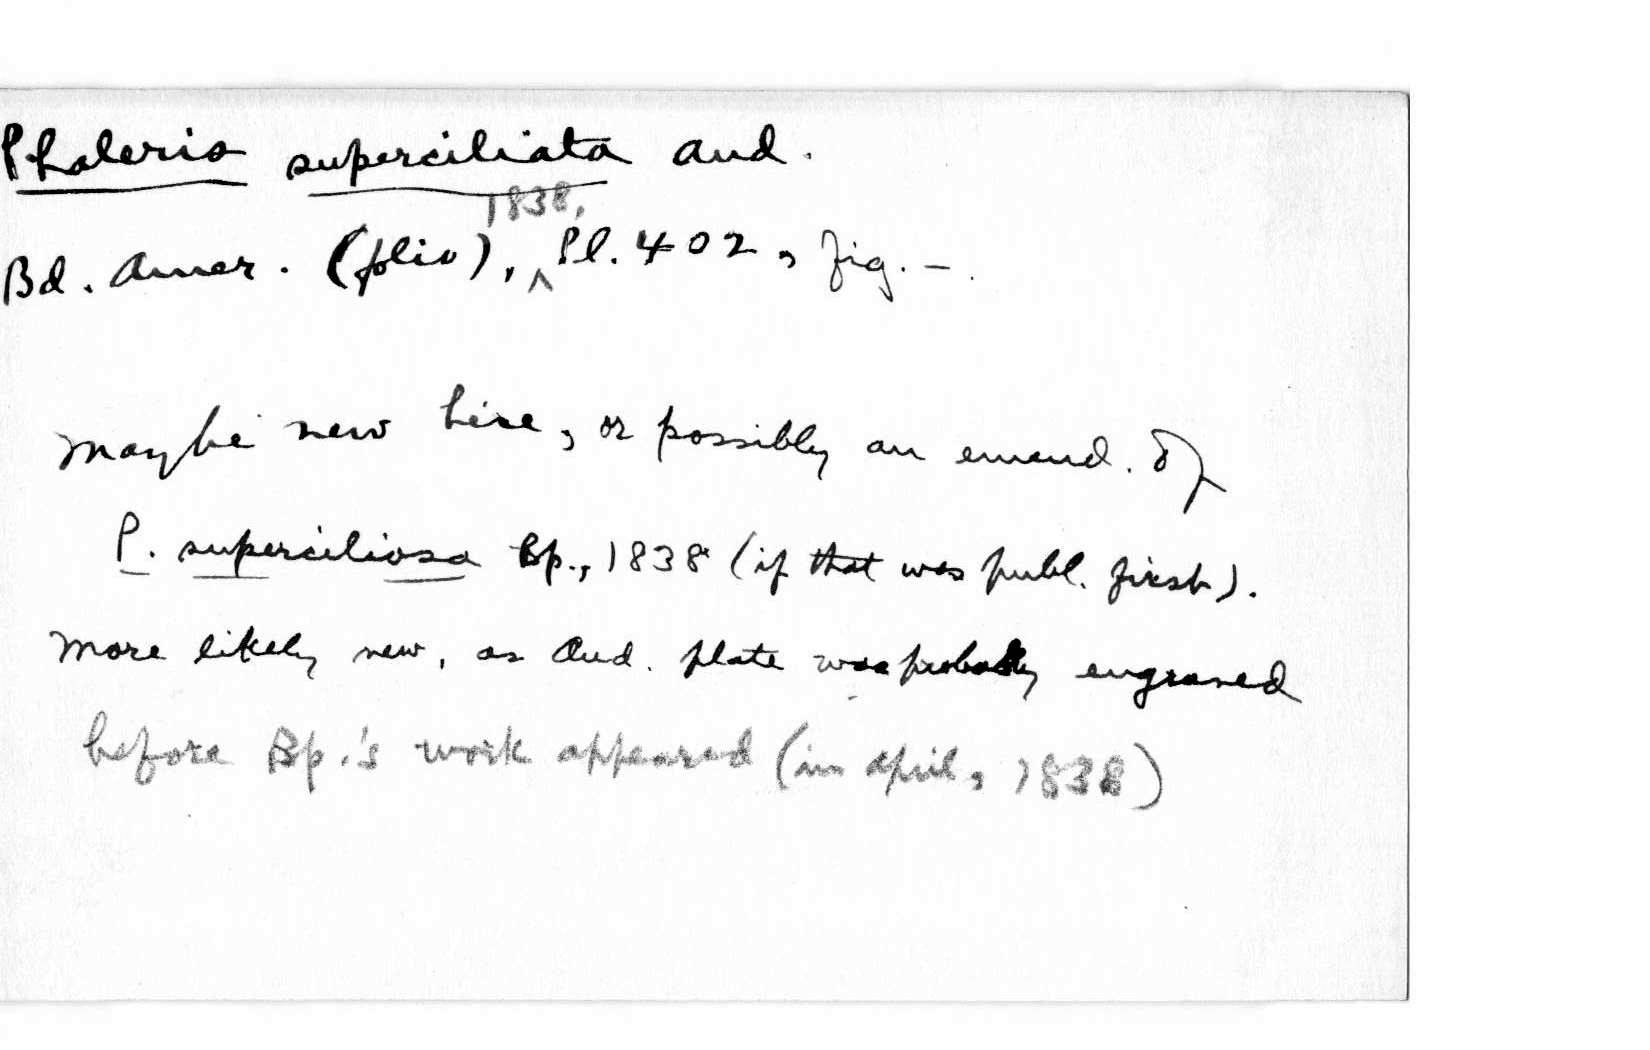 Phaleris superciliata Aud.
Bd. Amer. (folio), 1838, Pl. 402, fig. –.
Maybe new here, or possibly an emend. of
P. superciliosa Bp., 1838 (if that was publ. first).
More likely new, as Aud. plate was probably engraved
before Bp.'s work appeared (in April, 1838)